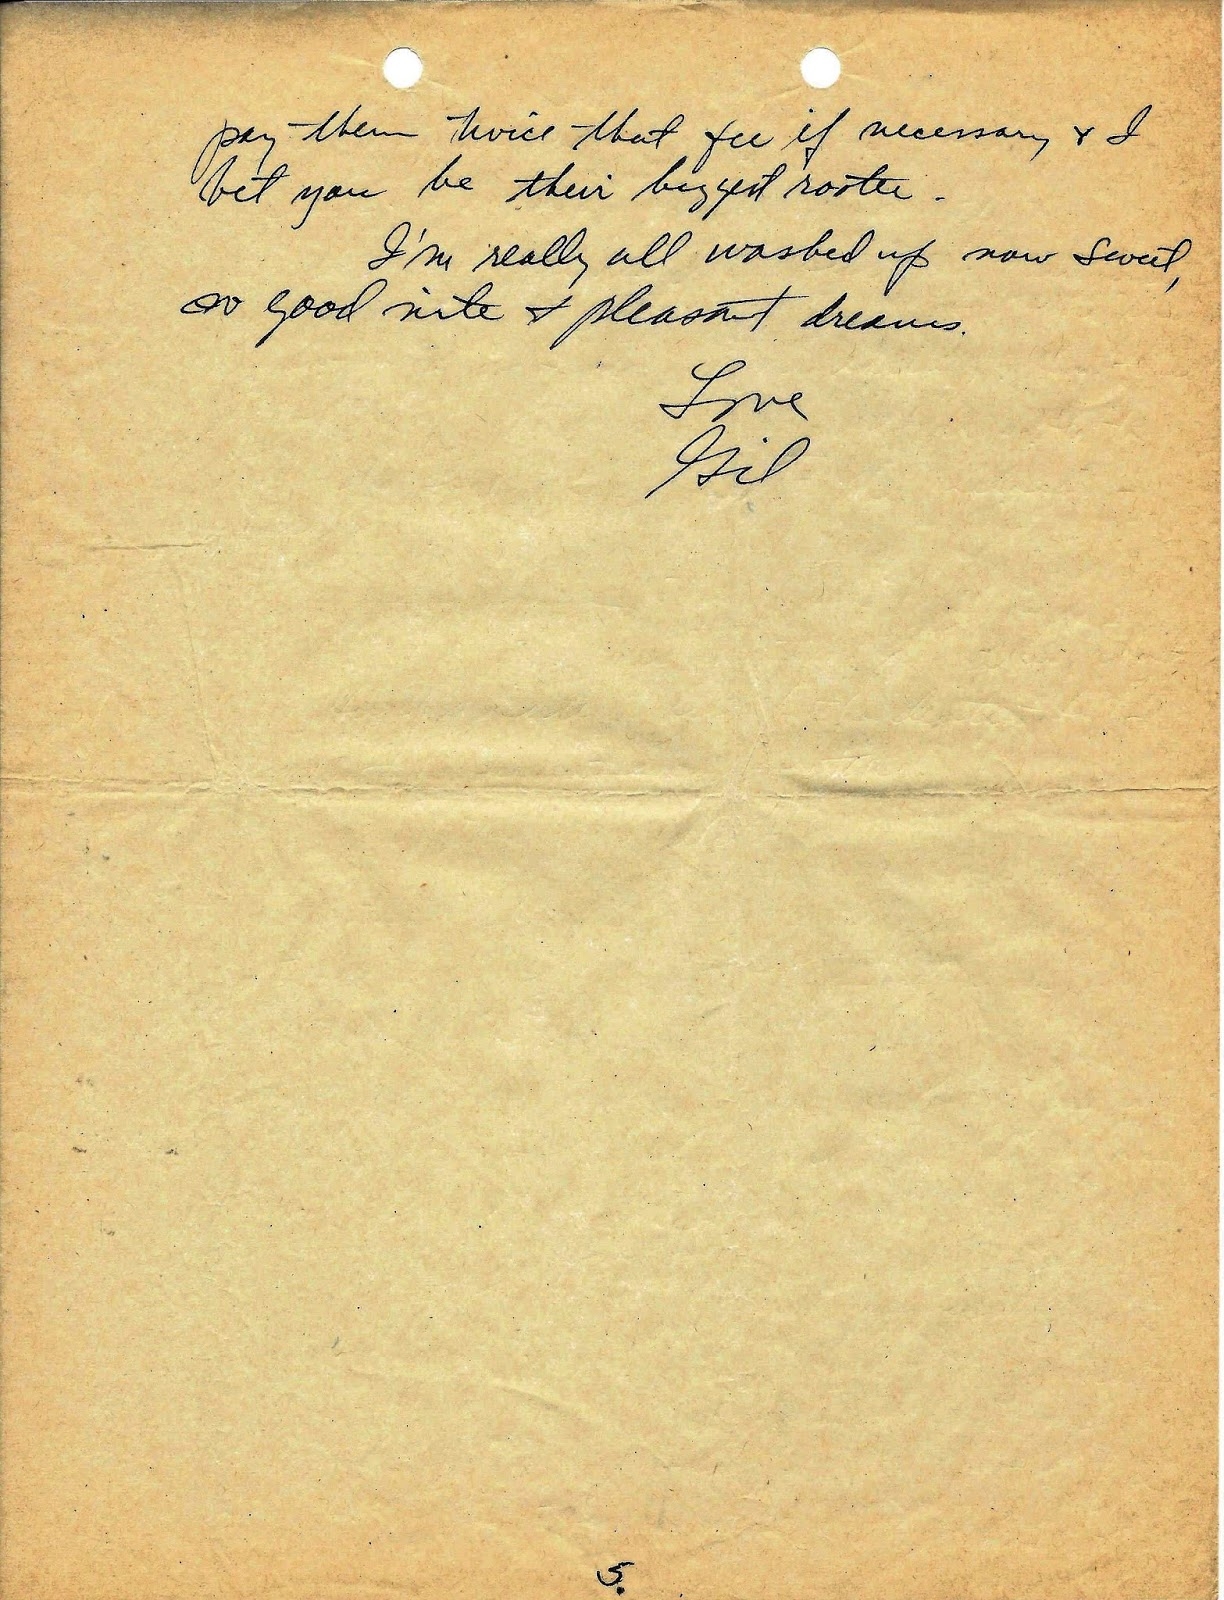 pay them twice that fee if necessary & I
bet you be their biggest rooter.
I'm really all washed up now Sweet,
so good nite & pleasant dreams.
Love
Gil
5.